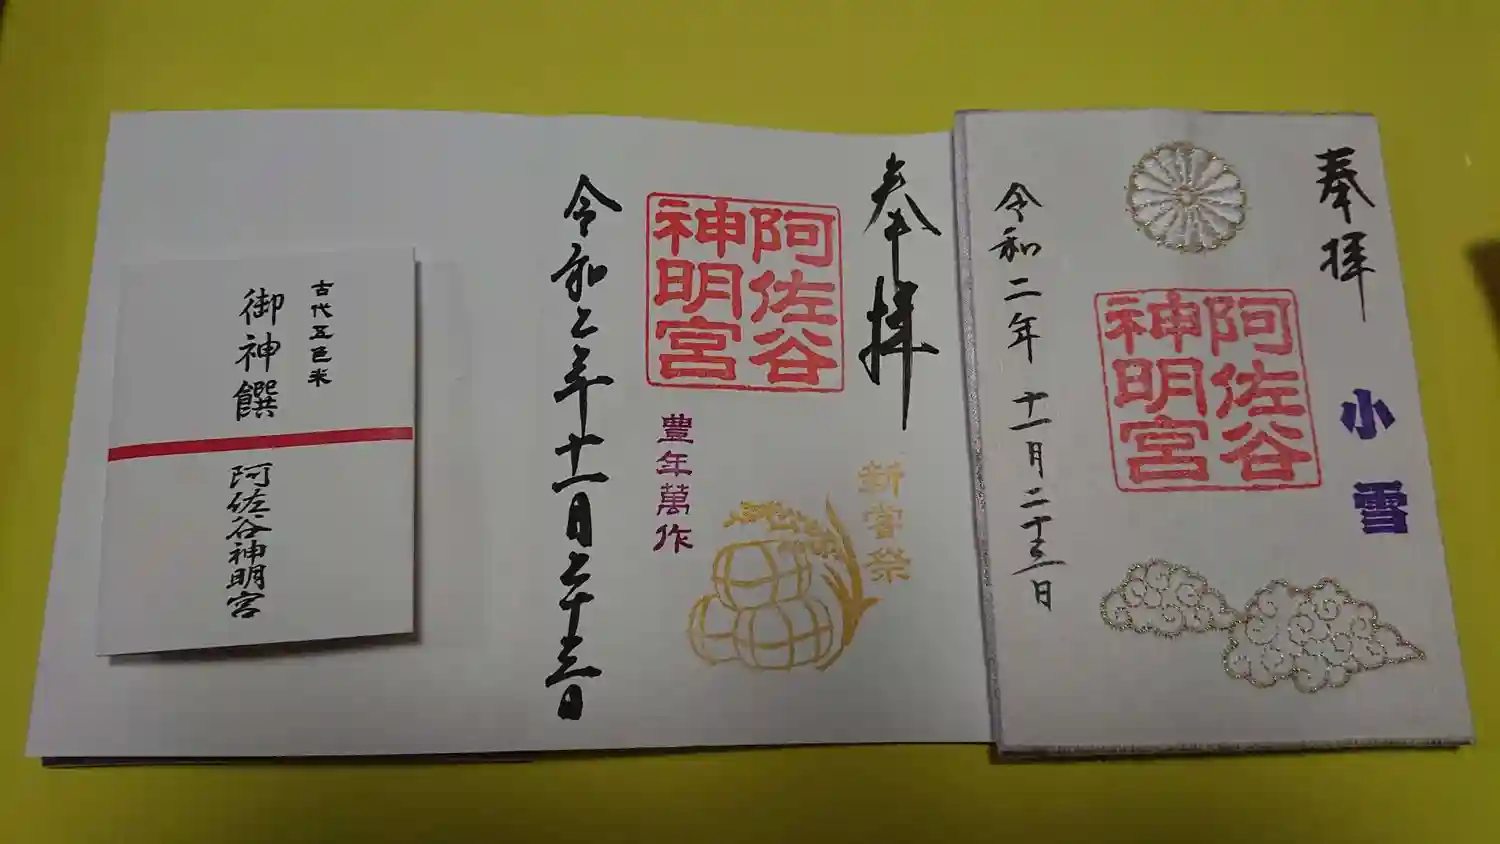 奉拝
小雪
阿佐谷
神明宮
令和二年十一月二十三日
奉拝
新嘗祭
阿佐谷
神明宮
豊年萬作
令和二年十一月二十三日
古代五色米
御神饌
阿佐谷神明宮